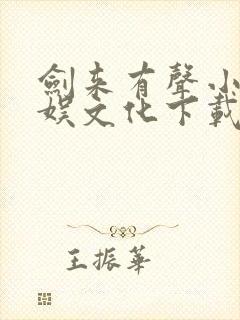 劍來有聲小
娛文化下載
王振華